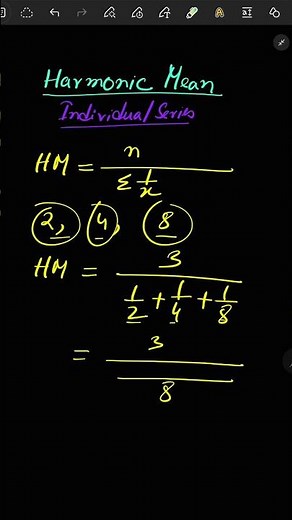 Harmonic Mean
Individual Series
HM = n / Σ 1/x
2, 4, 8
HM = 3 / 1/2 + 1/4 + 1/8
= 3 / 8